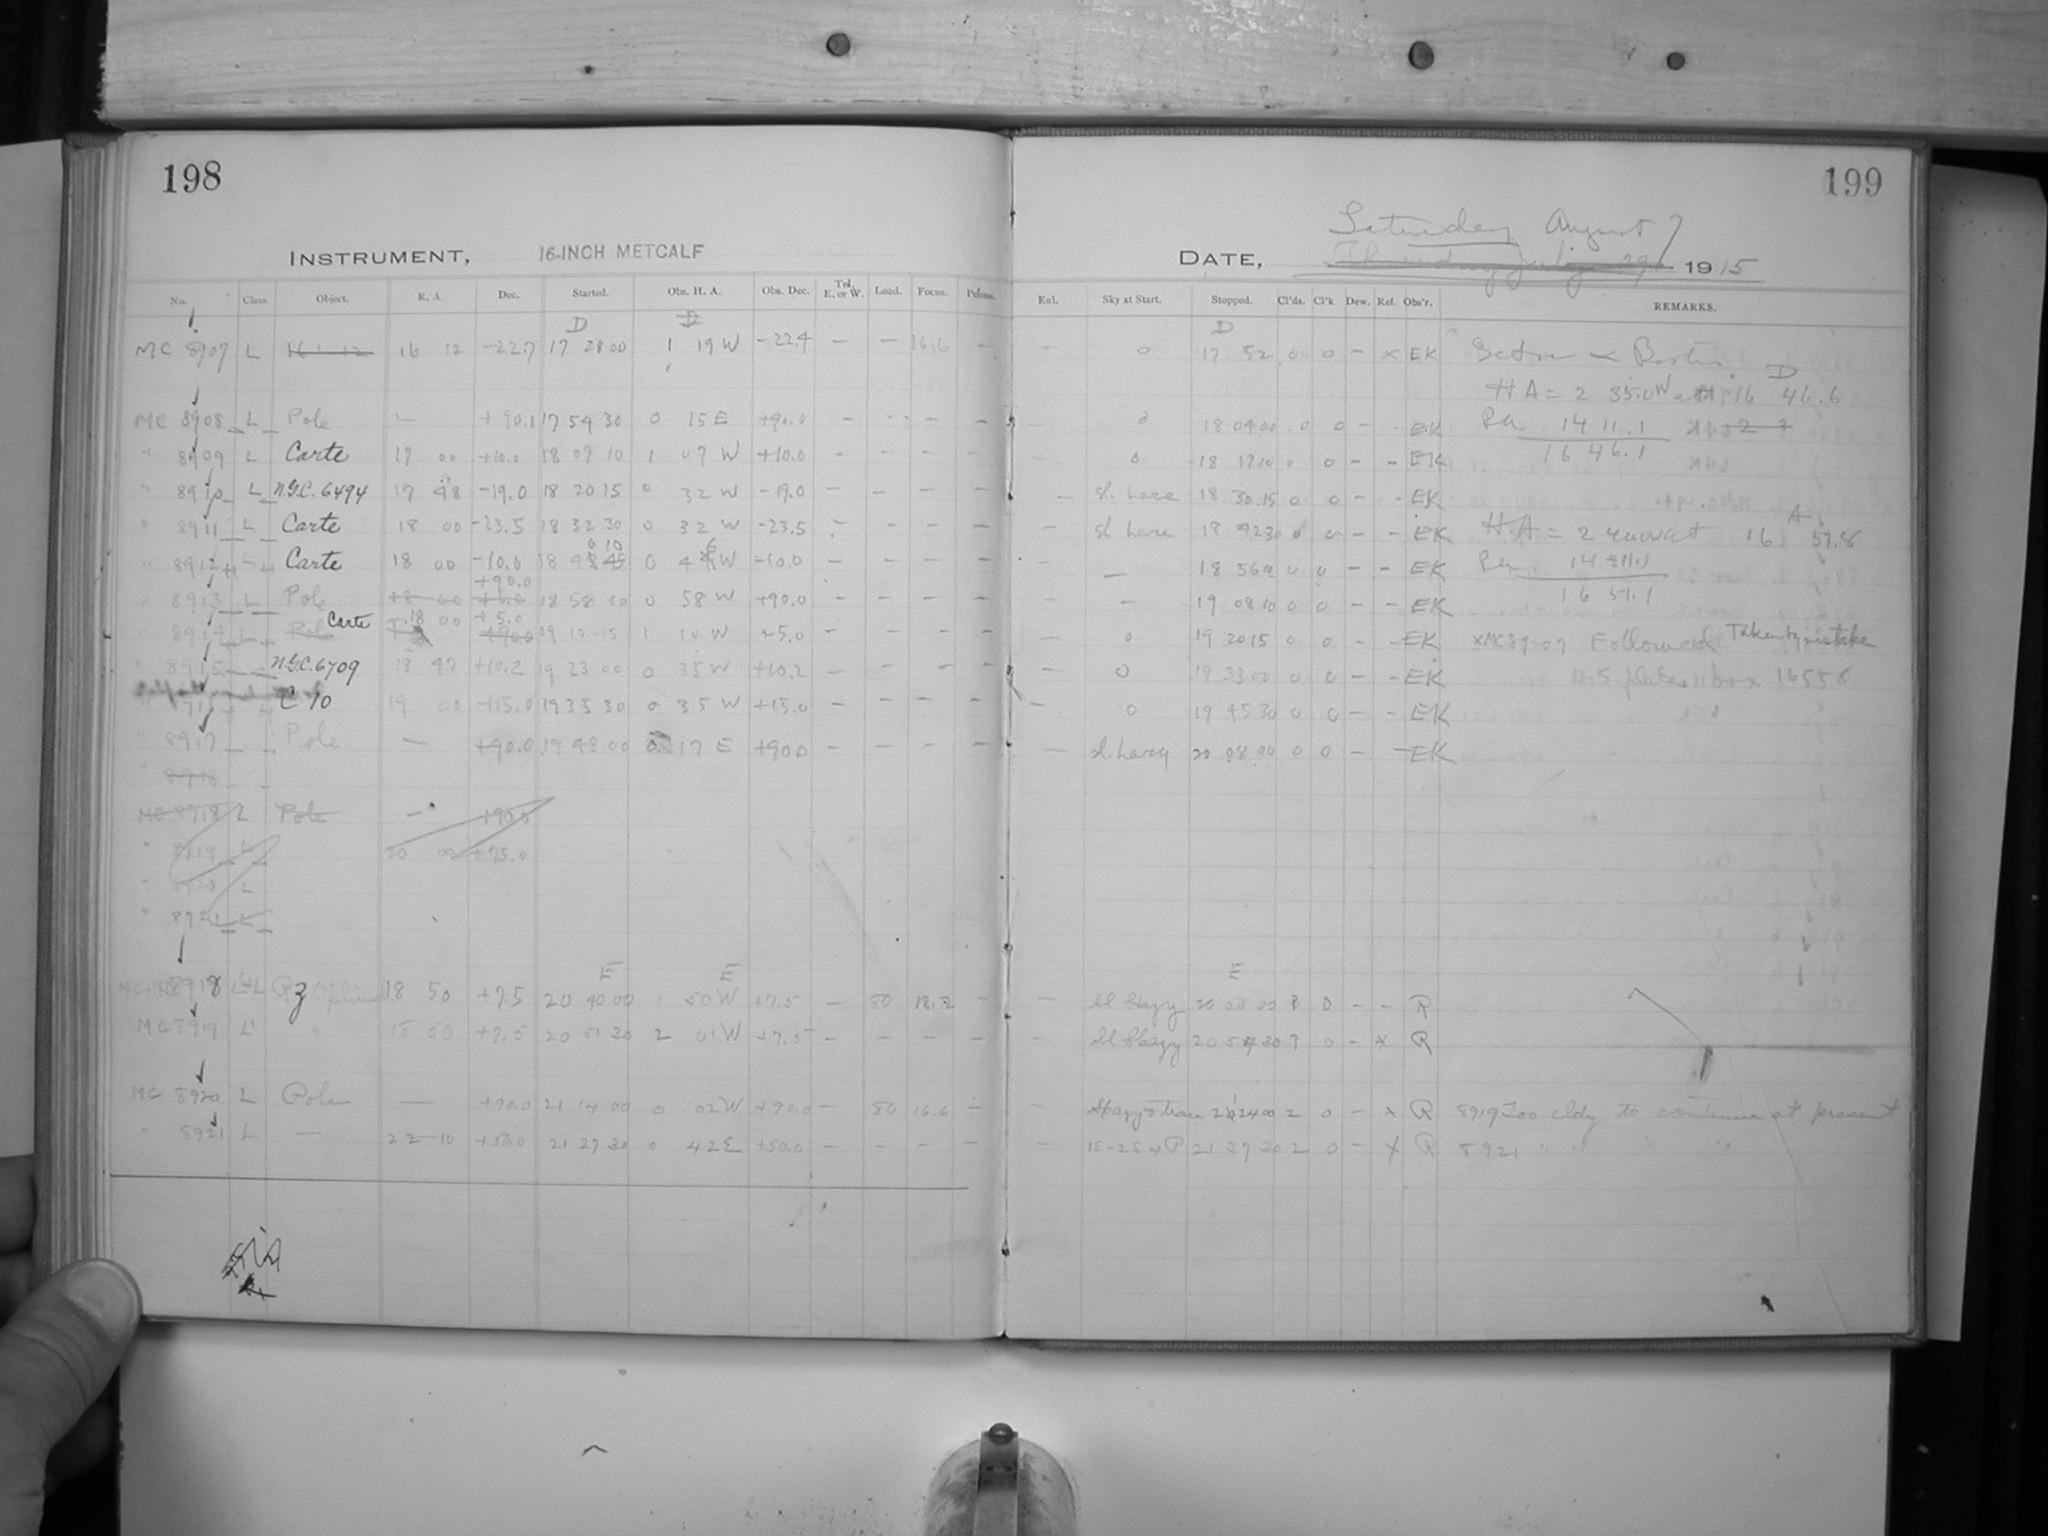 198
INSTRUMENT, 16-INCH METCALF
No. Class. Object. R. A. Dec. Started. Obs. H. A. Obs. Dec. Tel. E. or W. Load. Focus.
D
MC 8907 L 16 12 16 12 -22.7 17 28 00 1 19 W -22.4 - - 16.6 -
MC 8908 L Pole - +90.1 17 54 30 0 15 E +90.0 - - - -
" 8909 L Carte 17 00 +10.0 18 07 10 1 07 W +10.0 - - - -
" 8910 L N.G.C. 6494 17 48 -19.0 18 20 15 0 32 W -19.0 - - - -
" 8911 L Carte 18 00 -23.5 18 32 30 0 32 W -23.5 - - - -
" 8912 L Carte 18 00 -10.0 18 46 10 0 46 W -10.0 - - - -
+90.0
" 8913 L Pole 18 00 +5.0 18 58 10 0 58 W +90.0 - - - -
Carte 18 00 +5.0
" 8914 L Pole +90.0 19 10 15 1 10 W +5.0 - - - -
" 8915 N.G.C. 6709 18 47 +10.2 19 23 00 0 35 W +10.2 - - - -
C 10 19 00 +15.0 19 35 30 0 35 W +15.0 - - - -
" 8917 Pole - +90.0 19 48 00 0 17 E +90.0 - - - -
" 8918
MC 8918 L Pole - +90.0
" 8919 L 20 00 +75.0
" 8920 L
" 8921 L
E E
8918 L 18 50 +7.5 20 40 00 1 50 W +7.5 - 80 18.2 -
MC 8919 L " 18 50 +7.5 20 51 30 2 01 W +7.5 - - - -
MC 8920 L Pole - +90.0 21 14 00 0 02 W +90.0 - 80 16.6 -
" 8921 L - 22 10 +50.0 21 27 30 0 42 E +50.0 - - - -
199
Saturday August 7
DATE, Thursday July 29 1915
Ent. Sky at Start. Stopped. Cl'ds. Cl'k Dew. Ref. Obs'r. REMARKS.
D
- 0 17 52 0 0 - x EK
D
HA = 2 35.0 W at 16 46.6
- 0 18 04 00 0 0 - - EK RA 14 11.1
- 0 18 17 10 0 0 - - EK 16 46.1
- sl. haze 18 30 15 0 0 - - EK
- sl haze 18 42 30 0 0 - - EK HA = 2 16
- 18 56 10 0 0 - - EK RA
- 19 08 10 0 0 - - EK 16 51.1
- 0 19 20 15 0 0 - - EK xMC 8907 Followed Taken by mistake
- 0 19 33 00 0 0 - - EK plates box 16558
- 0 19 45 30 0 0 - - EK
- sl. hazy 20 08 00 0 0 - - EK
E
- Sl Hazy 20 50 00 ? 0 - - R
- Sl Hazy 20 54 30 ? 0 - x R
- 21 24 00 2 0 - x R 8919 Too cldy to continue at present
- 21 37 30 2 0 - x R 8921 " " " "